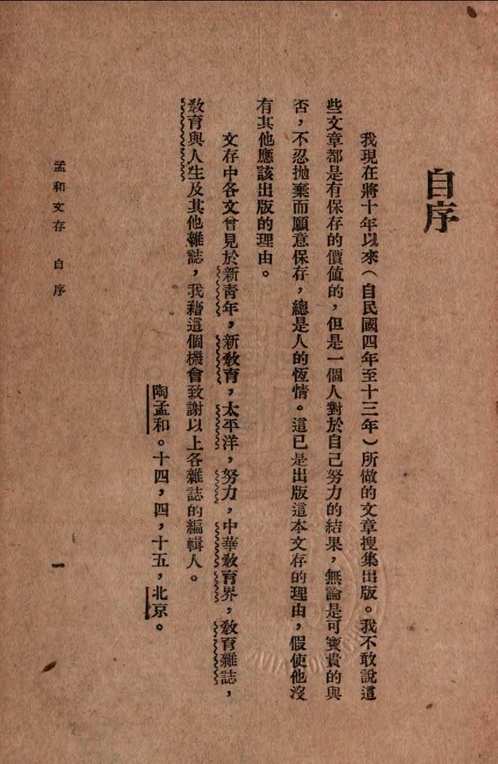 自序
我現在將十年以來(自民國四年至十三年)所做的文章搜集出版。我不敢說這
些文章都是有保存的價值的,但是一個人對於自己努力的結果,無論是可寶貴的與
否,不忍拋棄而願意保存,總是人的恆情。這已是出版這本文存的理由,假使他沒
有其他應該出版的理由。
文存中各文曾見於新青年,新教育,太平洋,努力,中華教育界,教育雜誌,
教育與人生及其他雜誌,我藉這個機會致謝以上各雜誌的編輯人。
陶孟和。十四,四,十五,北京。
孟和文存 自序
一